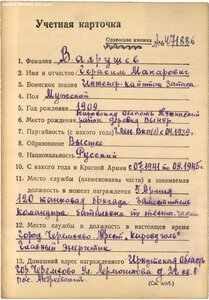 Учетная карточка
Орденская книжка № 471886
1. Фамилия Вахрушев
2. Имя и отчество Герасим Макарович
3. Воинское звание Инженер-капитан запаса
4. Пол Мужской
5. Год рождения 1909
6. Место рождения Кировская область
район деревня
7. Партийность (с какого года) Член ВКП(б) с 04.1939г.
8. Образование Высшее
9. Национальность Русский
10. С какого года в Красной Армии с 07.1941 по 09.1945г.
11. Место службы (наименование части) и занимаемая
должность в момент награждения
120 танковая бригада Заместитель
командира батальона по техн. части
12. Место службы и должность в настоящее время
город Черемхово Трест
Главный Энергетик
13. Домашний адрес награжденного Иркутская область
гор. Черемхово ул. Лермонтова д.
пос. Андреевский
(См. н/об.)